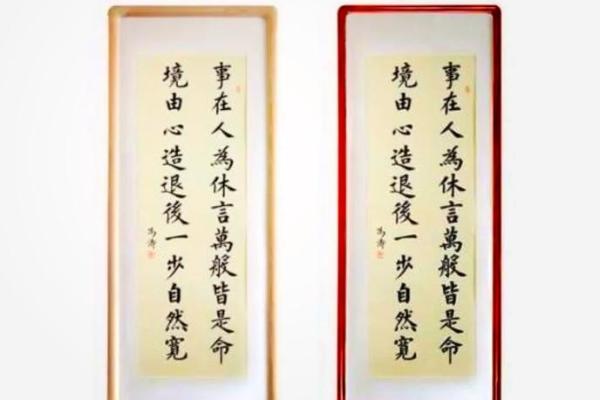 事在人為休言萬般皆是命
境由心造退後一步自然寬
馮濤
事在人為休言萬般皆是命
境由心造退後一步自然寬
馮濤